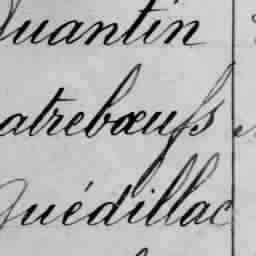 Quantin
atrebœufs
Quédillac